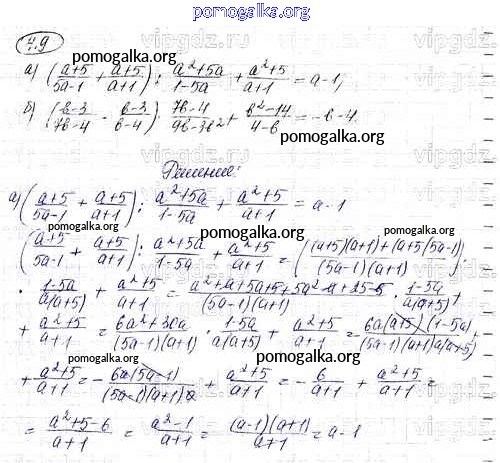 pomogalka.org
4.9
а) ((a+5)/(5a-1) + (a+5)/(a+1)) : (a²+5a)/(1-5a) + (a²+5)/(a+1) = a-1;
б) ((b-3)/(7b-4) - (b-3)/(b-4)) · (7b-4)/(9b-3b²) + (b²-14)/(4-b) = -b-4.
Решение:
а) ((a+5)/(5a-1) + (a+5)/(a+1)) : (a²+5a)/(1-5a) + (a²+5)/(a+1) = a-1
((a+5)/(5a-1) + (a+5)/(a+1)) : (a²+5a)/(1-5a) + (a²+5)/(a+1) = (((a+5)(a+1)+(a+5)(5a-1))/((5a-1)(a+1))) ·
· (1-5a)/(a(a+5)) + (a²+5)/(a+1) = (a²+a+5a+5+5a²-a+25a-5)/((5a-1)(a+1)) · (1-5a)/(a(a+5)) +
+ (a²+5)/(a+1) = (6a²+30a)/((5a-1)(a+1)) · (1-5a)/(a(a+5)) + (a²+5)/(a+1) = (6a(a+5)(1-5a))/((5a-1)(a+1)a(a+5)) +
+ (a²+5)/(a+1) = - (6a(5a-1))/((5a-1)(a+1)a) + (a²+5)/(a+1) = - 6/(a+1) + (a²+5)/(a+1) =
= (a²+5-6)/(a+1) = (a²-1)/(a+1) = ((a-1)(a+1))/(a+1) = a-1